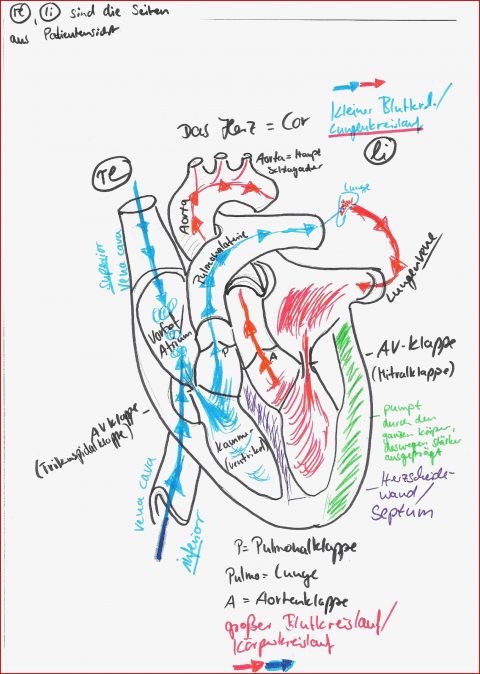 re, li sind die Seiten
aus Patientensicht
kleiner Blutkrl./
Lungenkreislauf
Das Herz = Cor
li
re
Aorta = Haupt
Schlagader
Lunge
Aorta
Pulmonalarterie
Lungenvene
superior
vena cava
Vorhof/
Atrium
P
A
AV-Klappe
(Mitralklappe)
AV Klappe
(Trikuspidalklappe)
Kammer
(ventrikel)
pumpt
durch den
ganzen Körper,
deswegen stärker
ausgeprägt
Herzscheide-
wand/
Septum
vena cava
inferior
P = Pulmonalklappe
Pulmo = Lunge
A = Aortenklappe
großer Blutkreislauf/
Körperkreislauf